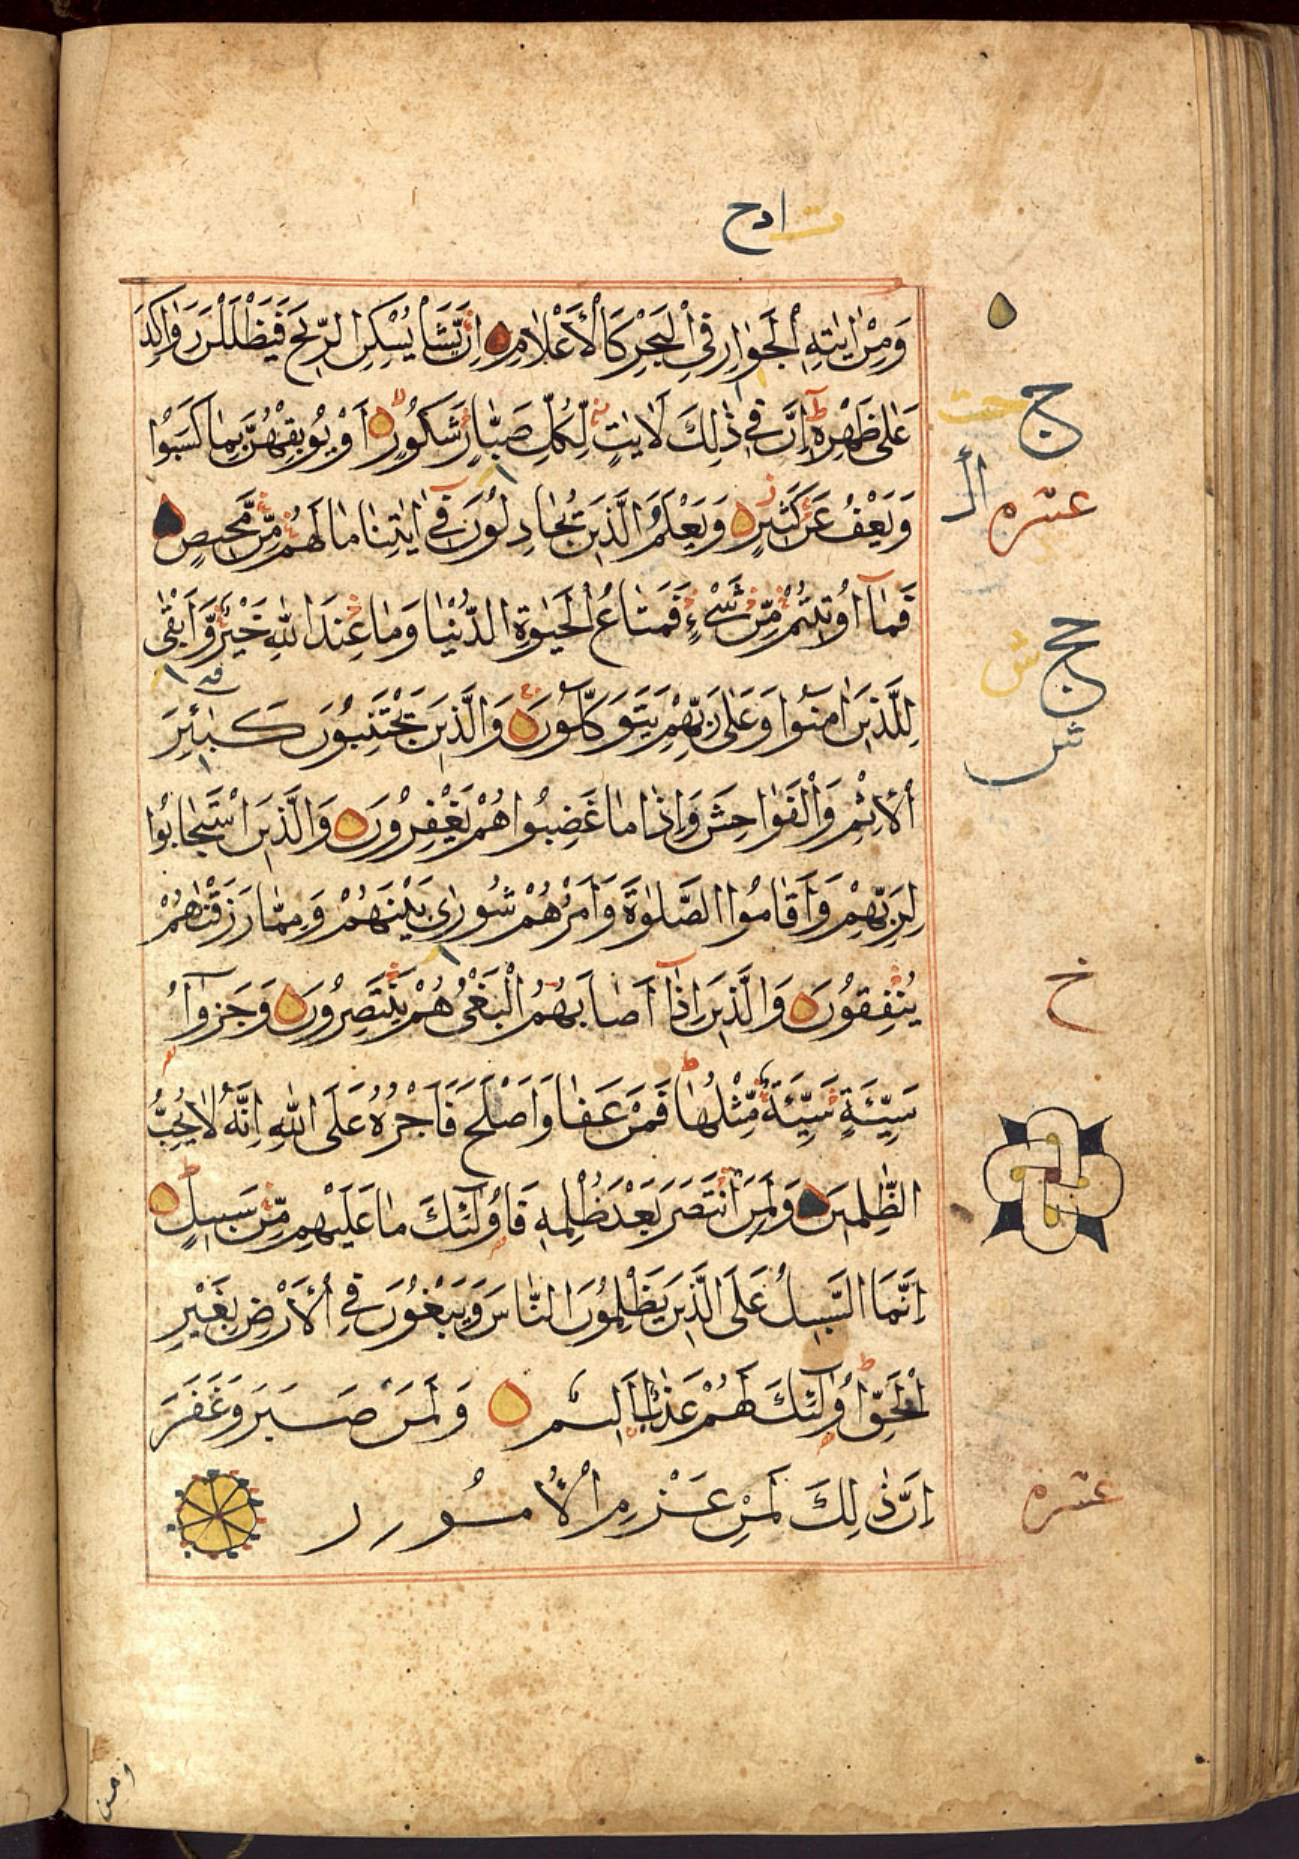 ادح
وَمِنْ اٰيٰتِهِ الْجَوَارِ فِي الْبَحْرِ كَالْأَعْلَامِ اِنْ يَّشَأْ يُسْكِنِ الرِّيحَ فَيَظْلَلْنَ رَوَاكِدَ
عَلٰى ظَهْرِهٖ اِنَّ فِي ذٰلِكَ لَاٰيٰتٍ لِّكُلِّ صَبَّارٍ شَكُوْرٍ اَوْ يُوْبِقْهُنَّ بِمَا كَسَبُوْا
وَيَعْفُ عَنْ كَثِيْرٍ وَيَعْلَمَ الَّذِيْنَ يُجَادِلُوْنَ فِيْ اٰيٰتِنَا مَا لَهُمْ مِّنْ مَّحِيْصٍ
فَمَآ اُوْتِيْتُمْ مِّنْ شَيْءٍ فَمَتَاعُ الْحَيٰوةِ الدُّنْيَا وَمَا عِنْدَ اللّٰهِ خَيْرٌ وَّاَبْقٰى
لِلَّذِيْنَ اٰمَنُوْا وَعَلٰى رَبِّهِمْ يَتَوَكَّلُوْنَ وَالَّذِيْنَ يَجْتَنِبُوْنَ كَبٰٓئِرَ
الْاِثْمِ وَالْفَوَاحِشَ وَاِذَا مَا غَضِبُوْا هُمْ يَغْفِرُوْنَ وَالَّذِيْنَ اسْتَجَابُوْا
لِرَبِّهِمْ وَاَقَامُوا الصَّلٰوةَ وَاَمْرُهُمْ شُوْرٰى بَيْنَهُمْ وَمِمَّا رَزَقْنٰهُمْ
يُنْفِقُوْنَ وَالَّذِيْنَ اِذَآ اَصَابَهُمُ الْبَغْيُ هُمْ يَنْتَصِرُوْنَ وَجَزٰٓؤُا
سَيِّئَةٍ سَيِّئَةٌ مِّثْلُهَا فَمَنْ عَفَا وَاَصْلَحَ فَاَجْرُهٗ عَلَى اللّٰهِ اِنَّهٗ لَا يُحِبُّ
الظّٰلِمِيْنَ وَلَمَنِ انْتَصَرَ بَعْدَ ظُلْمِهٖ فَاُولٰٓئِكَ مَا عَلَيْهِمْ مِّنْ سَبِيْلٍ
اِنَّمَا السَّبِيْلُ عَلَى الَّذِيْنَ يَظْلِمُوْنَ النَّاسَ وَيَبْغُوْنَ فِي الْاَرْضِ بِغَيْرِ
الْحَقِّ اُولٰٓئِكَ لَهُمْ عَذَابٌ اَلِيْمٌ وَلَمَنْ صَبَرَ وَغَفَرَ
اِنَّ ذٰلِكَ لَمِنْ عَزْمِ الْاُمُوْرِ
ج
عشره
حج
ش
خ
عشره